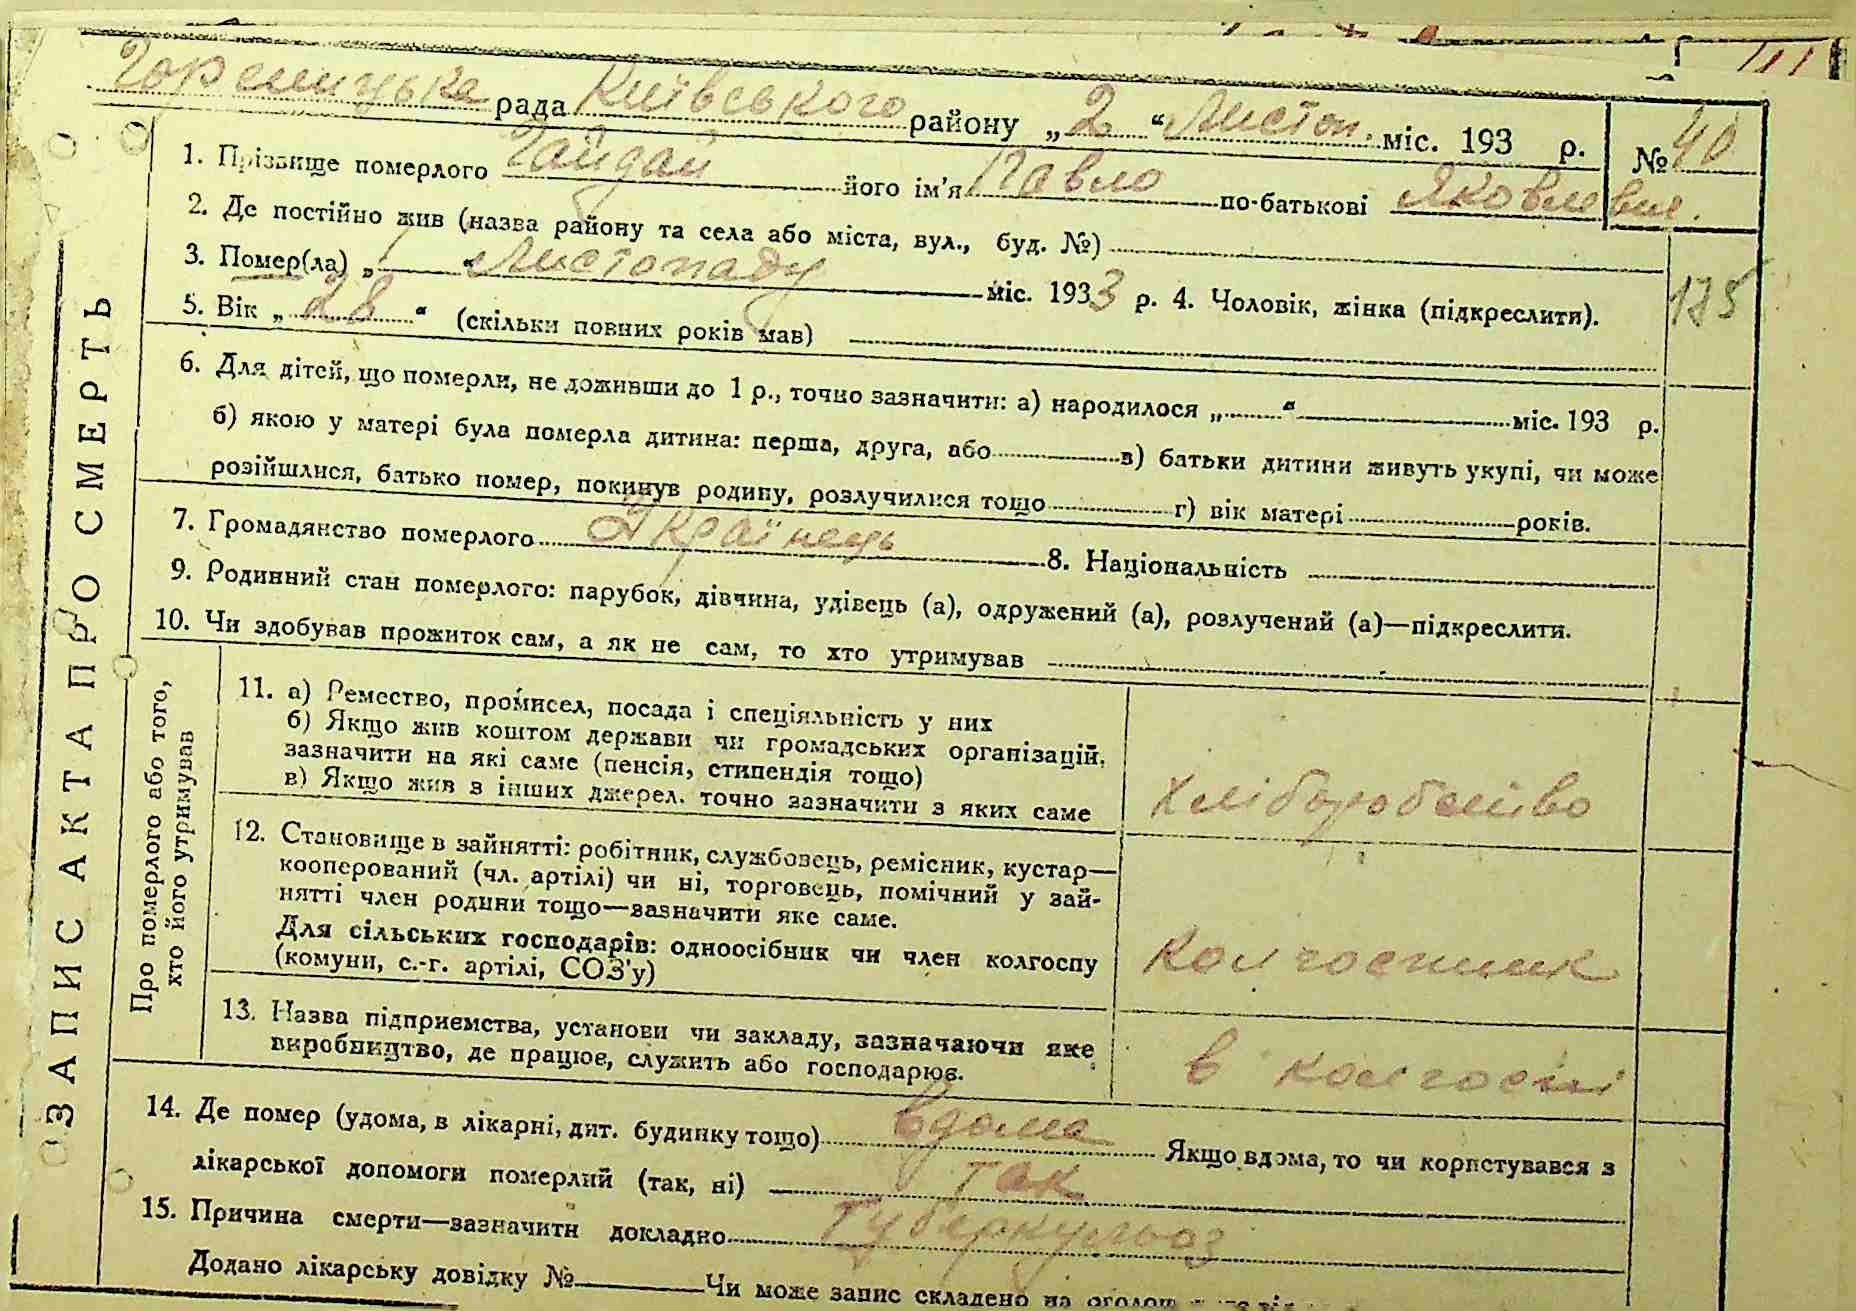 111
Гореницька рада Київського району „2“ Листоп. міс. 193 р. № 40
1. Прізвище померлого Гайдай його ім'я Павло по-батькові Яковлевич.
2. Де постійно жив (назва району та села або міста, вул., буд. №)
3. Помер(ла) „1“ Листопаду міс. 1933 р. 4. Чоловік, жінка (підкреслити). 175
5. Вік „28“ (скільки повних років мав)
6. Для дітей, що померли, не доживши до 1 р., точно зазначити: а) народилося „ “ міс. 193 р.
б) якою у матері була померла дитина: перша, друга, або в) батьки дитини живуть укупі, чи може
розійшлися, батько помер, покинув родину, розлучилися тощо г) вік матері років.
7. Громадянство померлого Українець 8. Національність
9. Родинний стан померлого: парубок, дівчина, удівець (а), одружений (а), розлучений (а)—підкреслити.
10. Чи здобував прожиток сам, а як не сам, то хто утримував
ЗАПИС АКТА ПРО СМЕРТЬ
Про померлого або того,
хто його утримував
11. а) Ремество, промисел, посада і спеціяльність у них
б) Якщо жив коштом держави чи громадських організацій,
зазначити на які саме (пенсія, стипендія тощо)
в) Якщо жив з інших джерел. точно зазначити з яких саме
хліборобство
12. Становище в зайнятті: робітник, службовець, ремісник, кустар—
кооперований (чл. артілі) чи ні, торговець, помічний у зай-
нятті член родини тощо—зазначити яке саме.
Для сільських господарів: одноосібник чи член колгоспу
(комуни, с.-г. артілі, СОЗ'у)
колгоспник
13. Назва підприємства, установи чи закладу, зазначаючи яке
виробництво, де працює, служить або господарює.
в колгоспі
14. Де помер (удома, в лікарні, дит. будинку тощо) вдома Якщо вдома, то чи користувався з
лікарської допомоги померлий (так, ні) так
15. Причина смерти—зазначити докладно Туберкульоз
Додано лікарську довідку № Чи може запис складено на